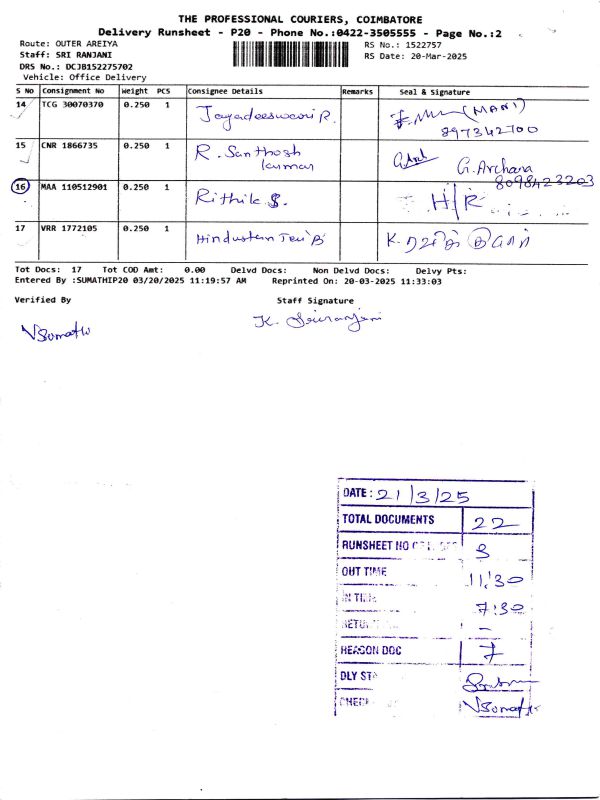 THE PROFESSIONAL COURIERS, COIMBATORE
Delivery Runsheet - P20 - Phone No.:0422-3505555 - Page No.:2
Route: OUTER AREIYA
RS No.: 1522757
Staff: SRI RANJANI
RS Date: 20-Mar-2025
DRS No.: DCJB152275702
Vehicle: Office Delivery
S No Consignment No Weight PCS Consignee Details Remarks Seal & Signature
14 TCG 30070370 0.250 1 Jayadeeswari R. (MANI)
897342700
15 CNR 1866735 0.250 1 R. Santhosh kumar G. Archana
8098423203
16 MAA 110512901 0.250 1 Rithik S. H/R
17 VRR 1772105 0.250 1 Hindustan
Tot Docs: 17 Tot COD Amt: 0.00 Delvd Docs: Non Delvd Docs: Delvy Pts:
Entered By :SUMATHIP20 03/20/2025 11:19:57 AM Reprinted On: 20-03-2025 11:33:03
Verified By Staff Signature
VSumathi K. Sriranjani
DATE: 21/3/25
TOTAL DOCUMENTS 22
RUNSHEET NO 3
OUT TIME 11:30
IN TIME 7:30
-
REASON DOC 7
DLY
VSumathi